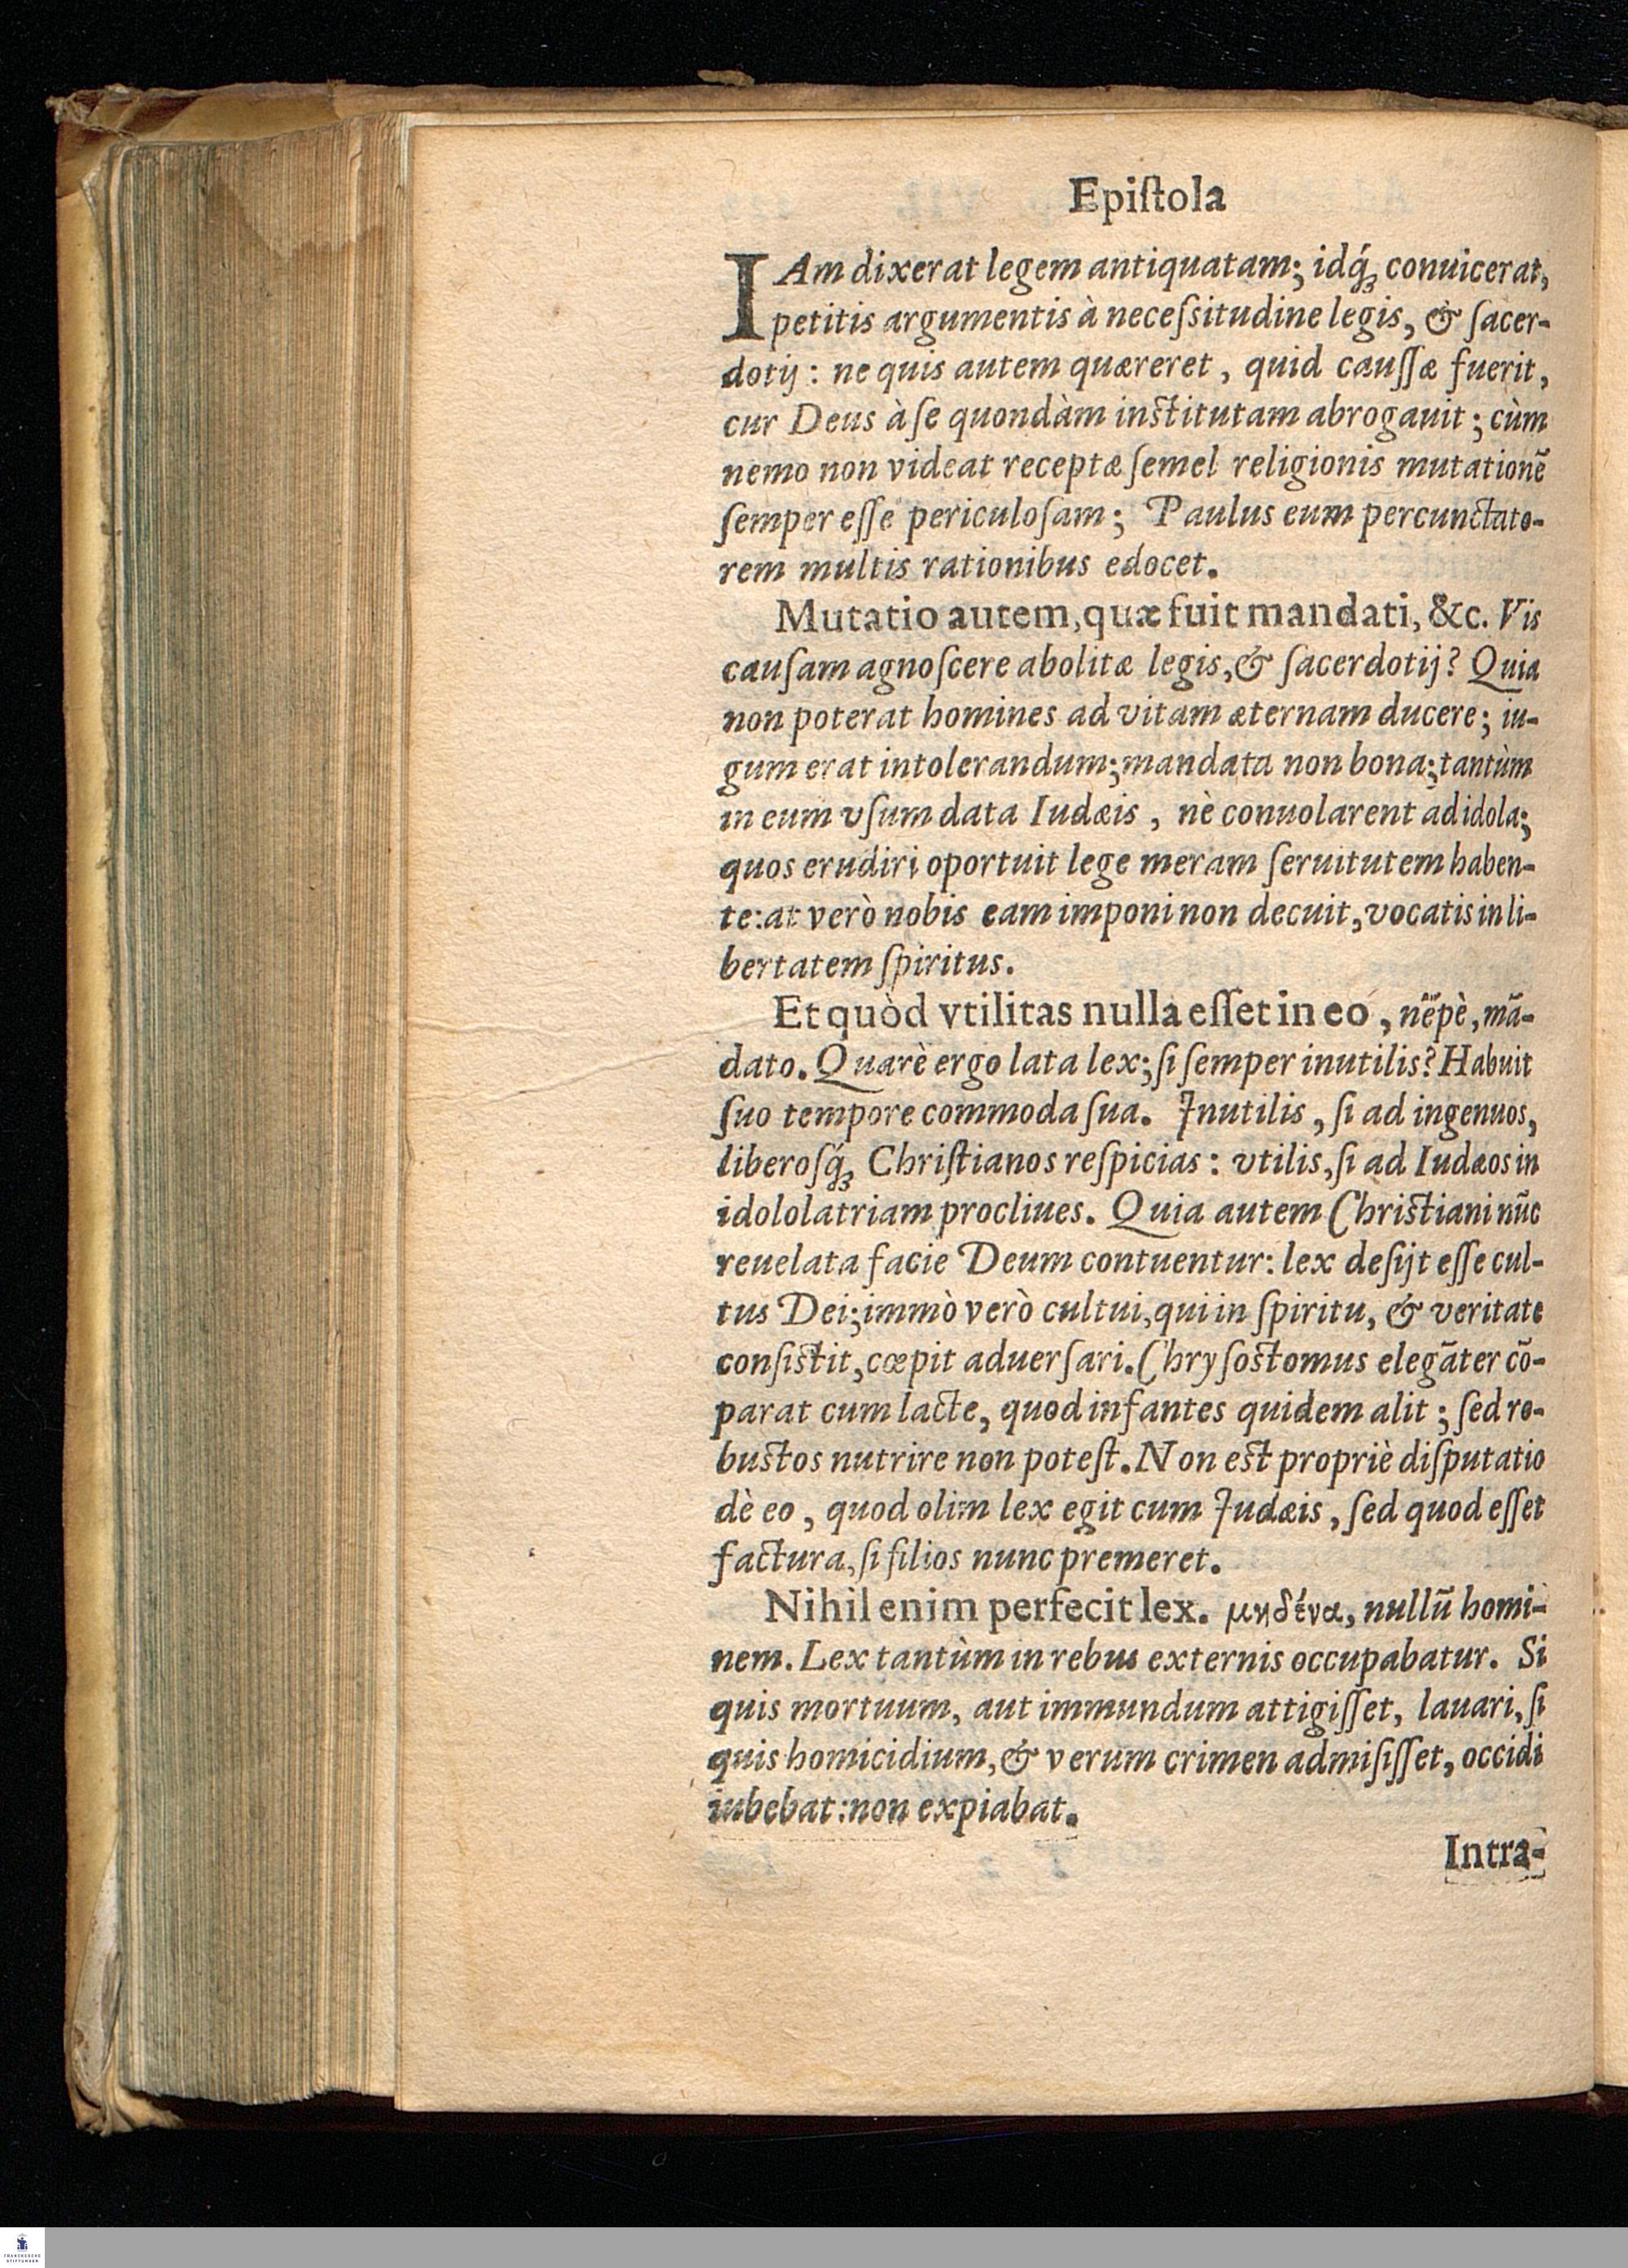 Epiſtola
IAm dixerat legem antiquatam; idq́ꝫ conuicerat,
petitis argumentis à neceſsitudine legis, & ſacer-
dotij: ne quis autem quæreret, quid cauſſæ fuerit,
cur Deus à ſe quondàm inſtitutam abrogauit; cùm
nemo non videat receptæ ſemel religionis mutationē
ſemper eſſe periculoſam; Paulus eum percunctato-
rem multis rationibus edocet.
Mutatio autem, quæ fuit mandati, &c. Vis
cauſam agnoſcere abolitæ legis, & ſacerdotij? Quia
non poterat homines ad vitam æternam ducere; iu-
gum erat intolerandum; mandata non bona; tantùm
in eum vſum data Iudæis, nè conuolarent ad idola;
quos erudiri oportuit lege meram ſeruitutem haben-
te: at verò nobis eam imponi non decuit, vocatis in li-
bertatem ſpiritus.
Et quòd vtilitas nulla eſſet in eo, nēpè, mā-
dato. Quarè ergo lata lex; ſi ſemper inutilis? Habuit
ſuo tempore commoda ſua. Inutilis, ſi ad ingenuos,
liberoſq́ꝫ Chriſtianos reſpicias: vtilis, ſi ad Iudæos in
idololatriam procliues. Quia autem Chriſtiani nūc
reuelata facie Deum contuentur: lex deſijt eſſe cul-
tus Dei; immò verò cultui, qui in ſpiritu, & veritate
conſiſtit, cœpit aduerſari. Chryſoſtomus elegāter cō-
parat cum lacte, quod infantes quidem alit; ſed ro-
buſtos nutrire non poteſt. Non eſt propriè diſputatio
dè eo, quod olim lex egit cum Iudæis, ſed quod eſſet
factura, ſi filios nunc premeret.
Nihil enim perfecit lex. μηδένα, nullū homi-
nem. Lex tantùm in rebus externis occupabatur. Si
quis mortuum, aut immundum attigiſſet, lauari, ſi
quis homicidium, & verum crimen admiſiſſet, occidi
iubebat: non expiabat.
Intra-
FRANCKESCHE
STIFTUNGEN